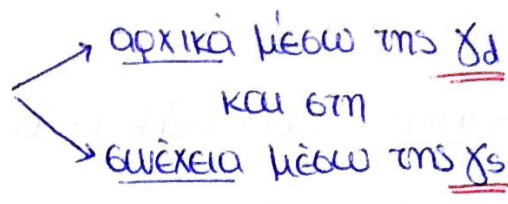 αρχικά μέσω της γd
και στη
συνέχεια μέσω της γs